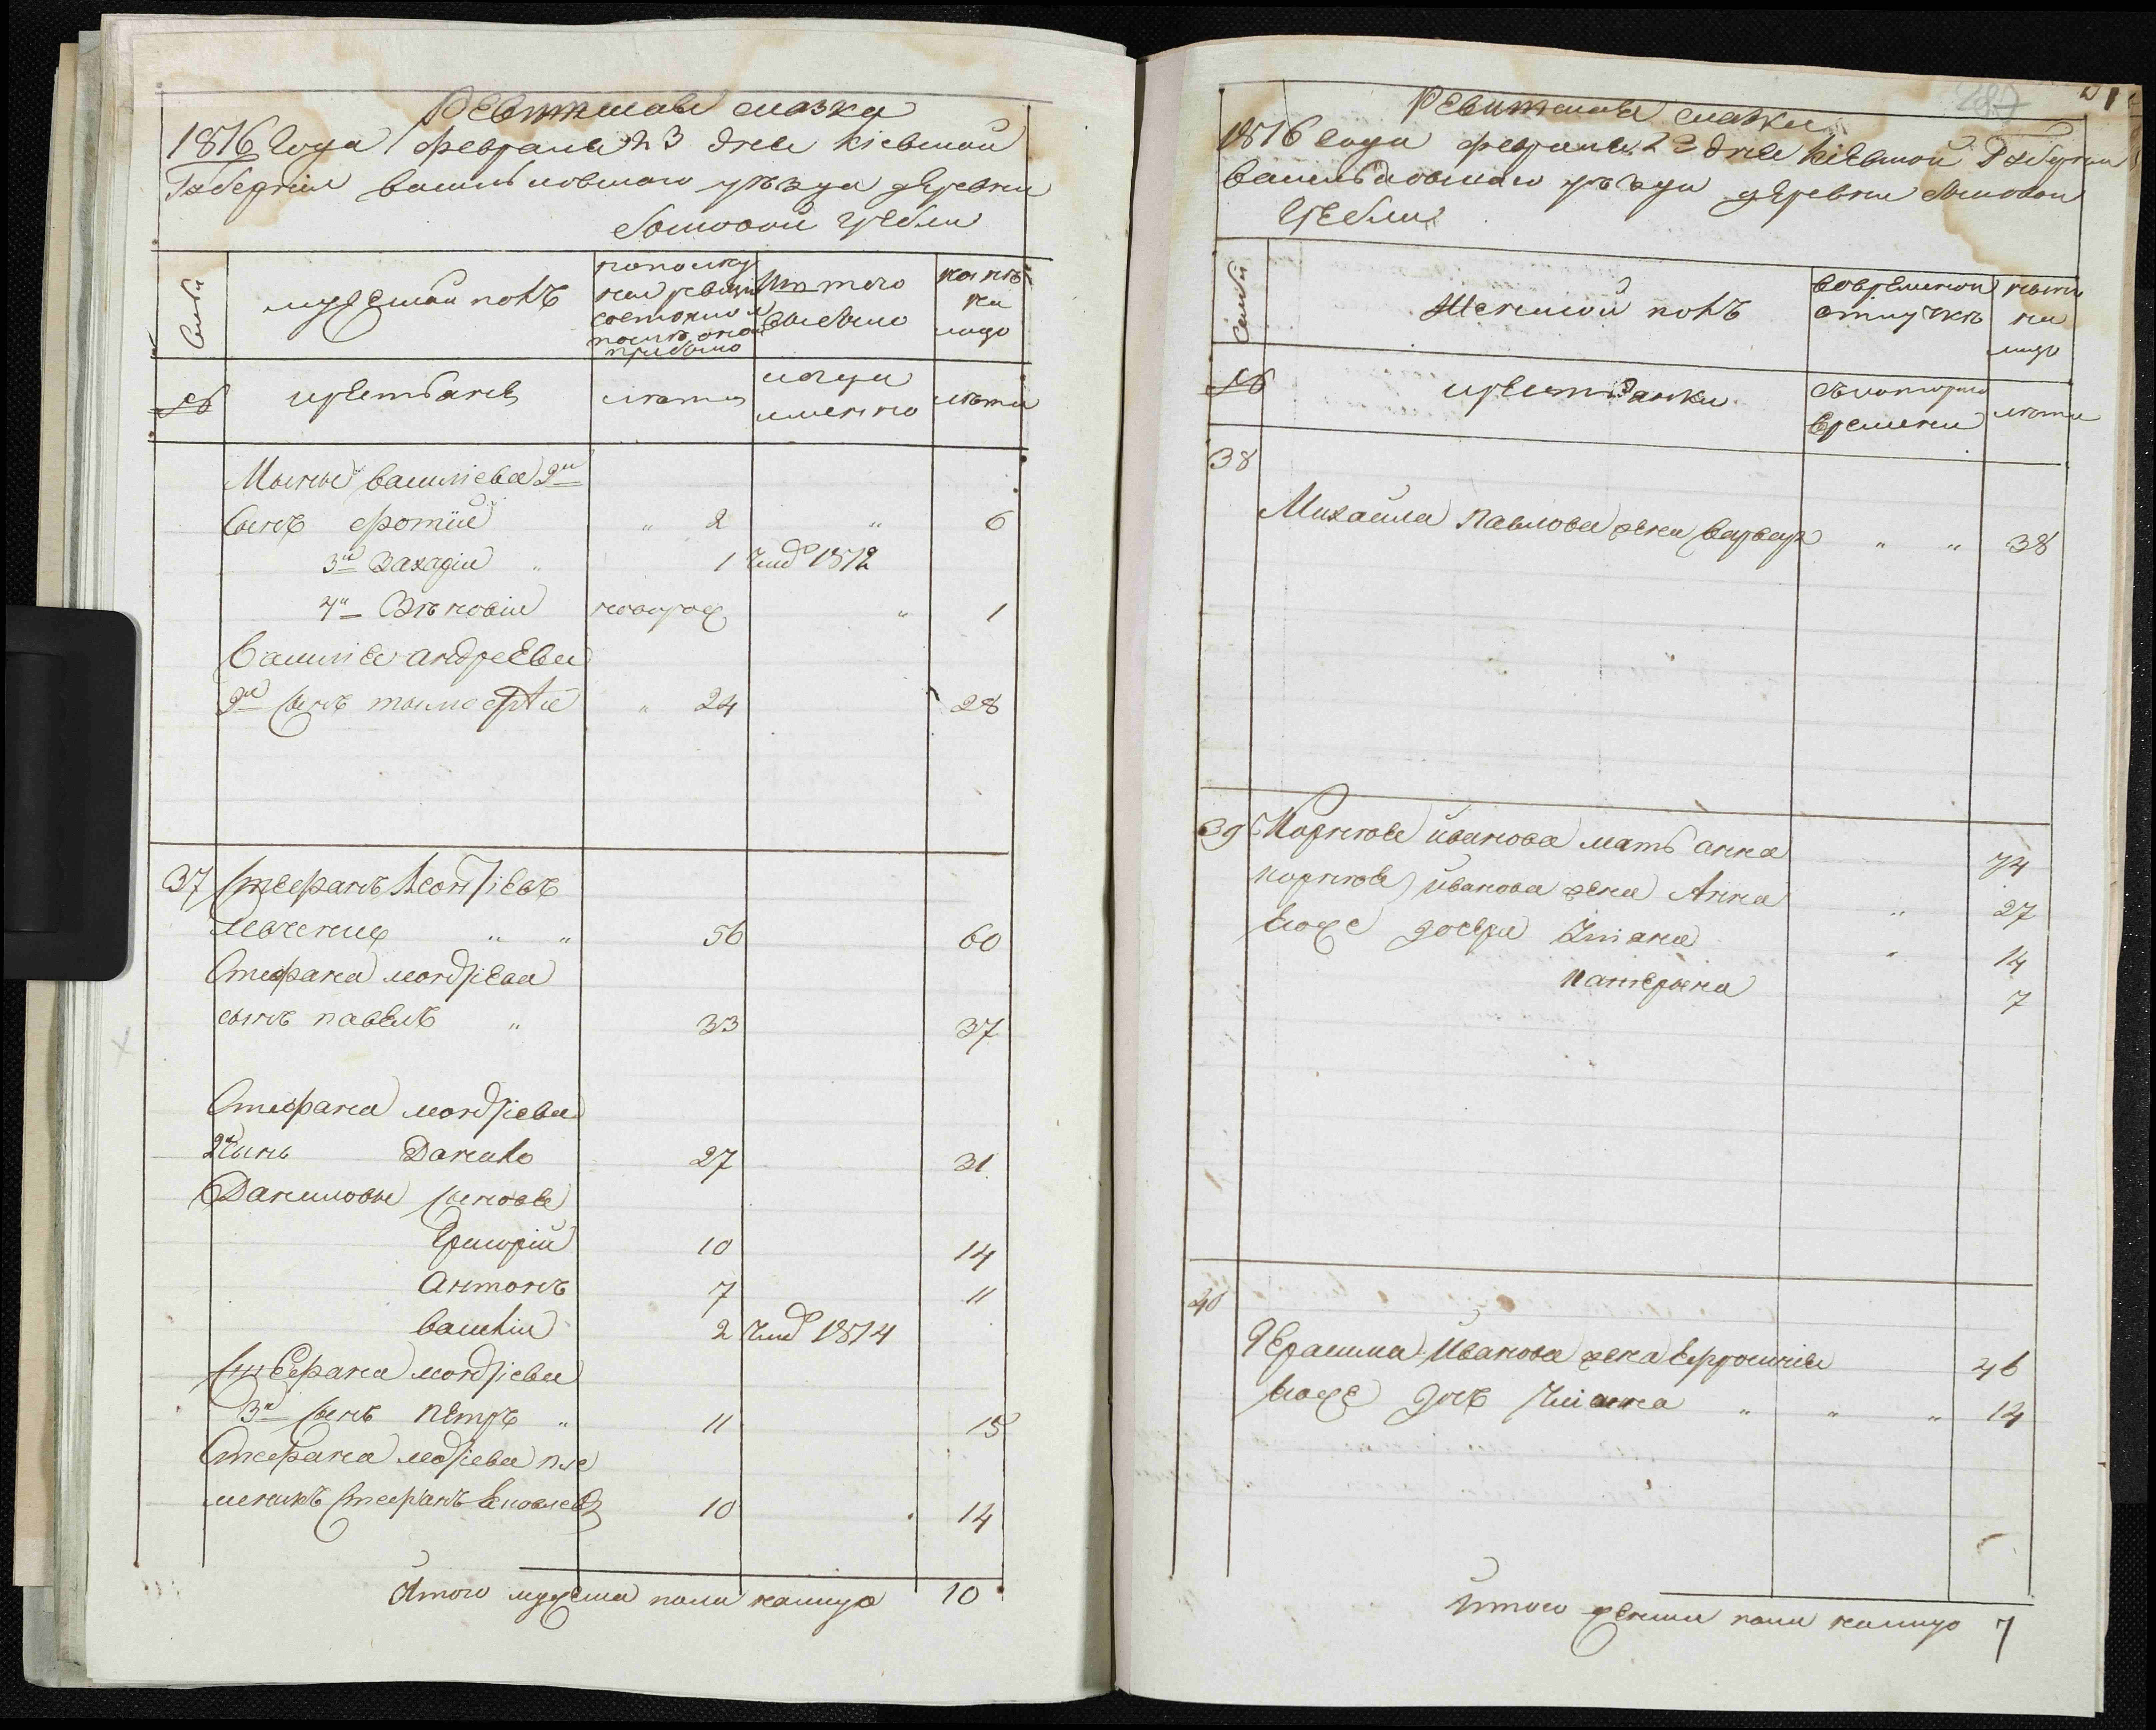 Ревижская сказка
1816 года февраля 23 дня Кіевской
Губерніи Васильковскаго уѣзда деревни
Сомовой Гребли
Семьи
мужеской полъ
по последней ревизіи состояло и после оной прибыло
Изъ того выбыло
ныне на лицо
№
крестьяне
лѣта
когда именно
лѣта
Василіева 2й
сынъ Фотій " 2 " 6
3й Захарій " 1 умеръ 1812
4й Зѣновій новорож " 1
Василія Андреева
2й сынъ Тимофѣй " 24 28
37 Стефанъ Леонтіевъ
Левченко " " 56 60
Стефана Леонтіева
сынъ Павелъ " 33 37
Стефана Леонтіева
2й сынъ Данило 27 31
Даниловы сыновья
Григорій 10 14
Антонъ 7 11
Василій 2 умеръ 1814
Стефана Леонтіева
3й сынъ Петръ " 11 15
Стефана Леонтіева пле
менникъ Стефанъ Яковлевъ 10 14
Итого мужеска пола налицо 10
287
Ревижская сказка
1816 года февраля 23 дня Кіевской Губерніи
Васильковскаго уѣзда деревни Сомовой
Гребли
Семьи
Женской полъ
во временной отлучкѣ
ныне на лицо
№
крестьянки
съ котораго времени
лѣта
38
Михайла Павлова жена Варвара " " 38
39 Корнія Иванова мать Анна 74
Корнія Иванова жена Анна " 27
его же дочери Уліана " 14
Катерина 7
40
Герасима Иванова жена Ефросинія 46
его же дочь Уліана " " " 14
Итого женска пола налицо 7